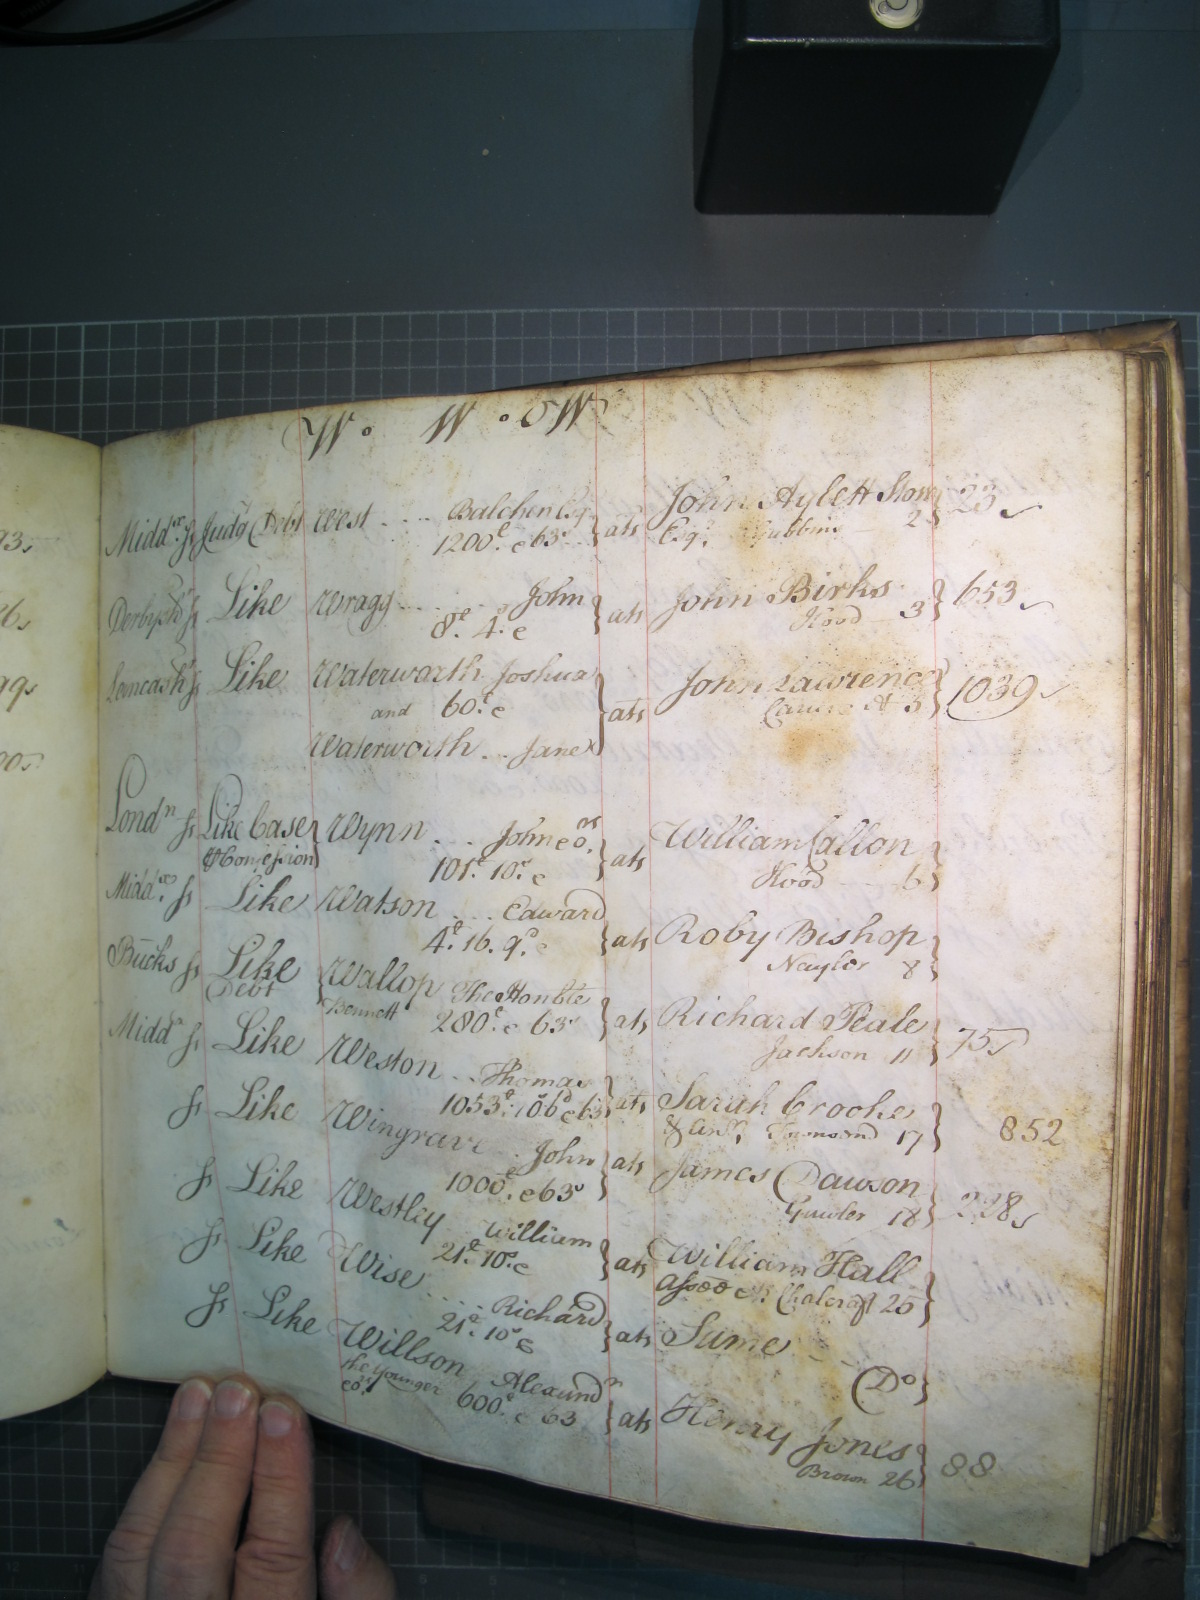 W. W. W
93
Midd.x ss Judg Debt West .... Balchen Esq. } ats John Aylett Stow 23
1200£ e 63s Esq. Gubbins 2
Derbysh ss Like Wragg ..... John } ats John Birks } 653
8£. 4s. e Hood 3
Lancash ss Like Waterworth Joshua } ats John Lawrence } 1039
and 60£ e 3
Waterworth .. Jane
Lond.n ss Like Case Wynn ... John } ats William Callon }
& Confession 101£ 10s. e Hood 6
Midd.x ss Like Watson .... Edward } ats Roby Bishop }
4£. 16. 9d. e Naylor 8
Bucks ss Like Wallop The Honble } ats Richard Teale } 75
Debt Bennett 280£. e 63s Jackson 11
Midd.x ss Like Weston ... Thomas } ats Sarah Crooke } 852
1053£. 10 6d e 63s Townsend 17
ss Like Wingrave . John } ats James Dawson } 228
1000£. e 63s Gawler 18
ss Like Westley William } ats William Hall }
21£. 10s. e Assee Chalcraft 25
ss Like Wise ..... Richard } ats Same
21£. 10s e (Do }
ss Like Willson Alexand.r } ats Henry Jones } 88
the Younger 600£. e 63 Brown 26